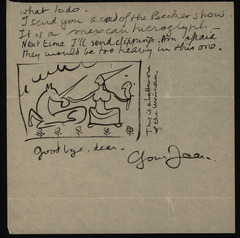 what to do.
I send you a card of the Becker show.
It is a mexican hieroglyph.
Next time I'll send clippings. Am afraid
they would be too heavy in this one.
This is a
of the Unicorn
Goodbye, dear.
Your Jean.